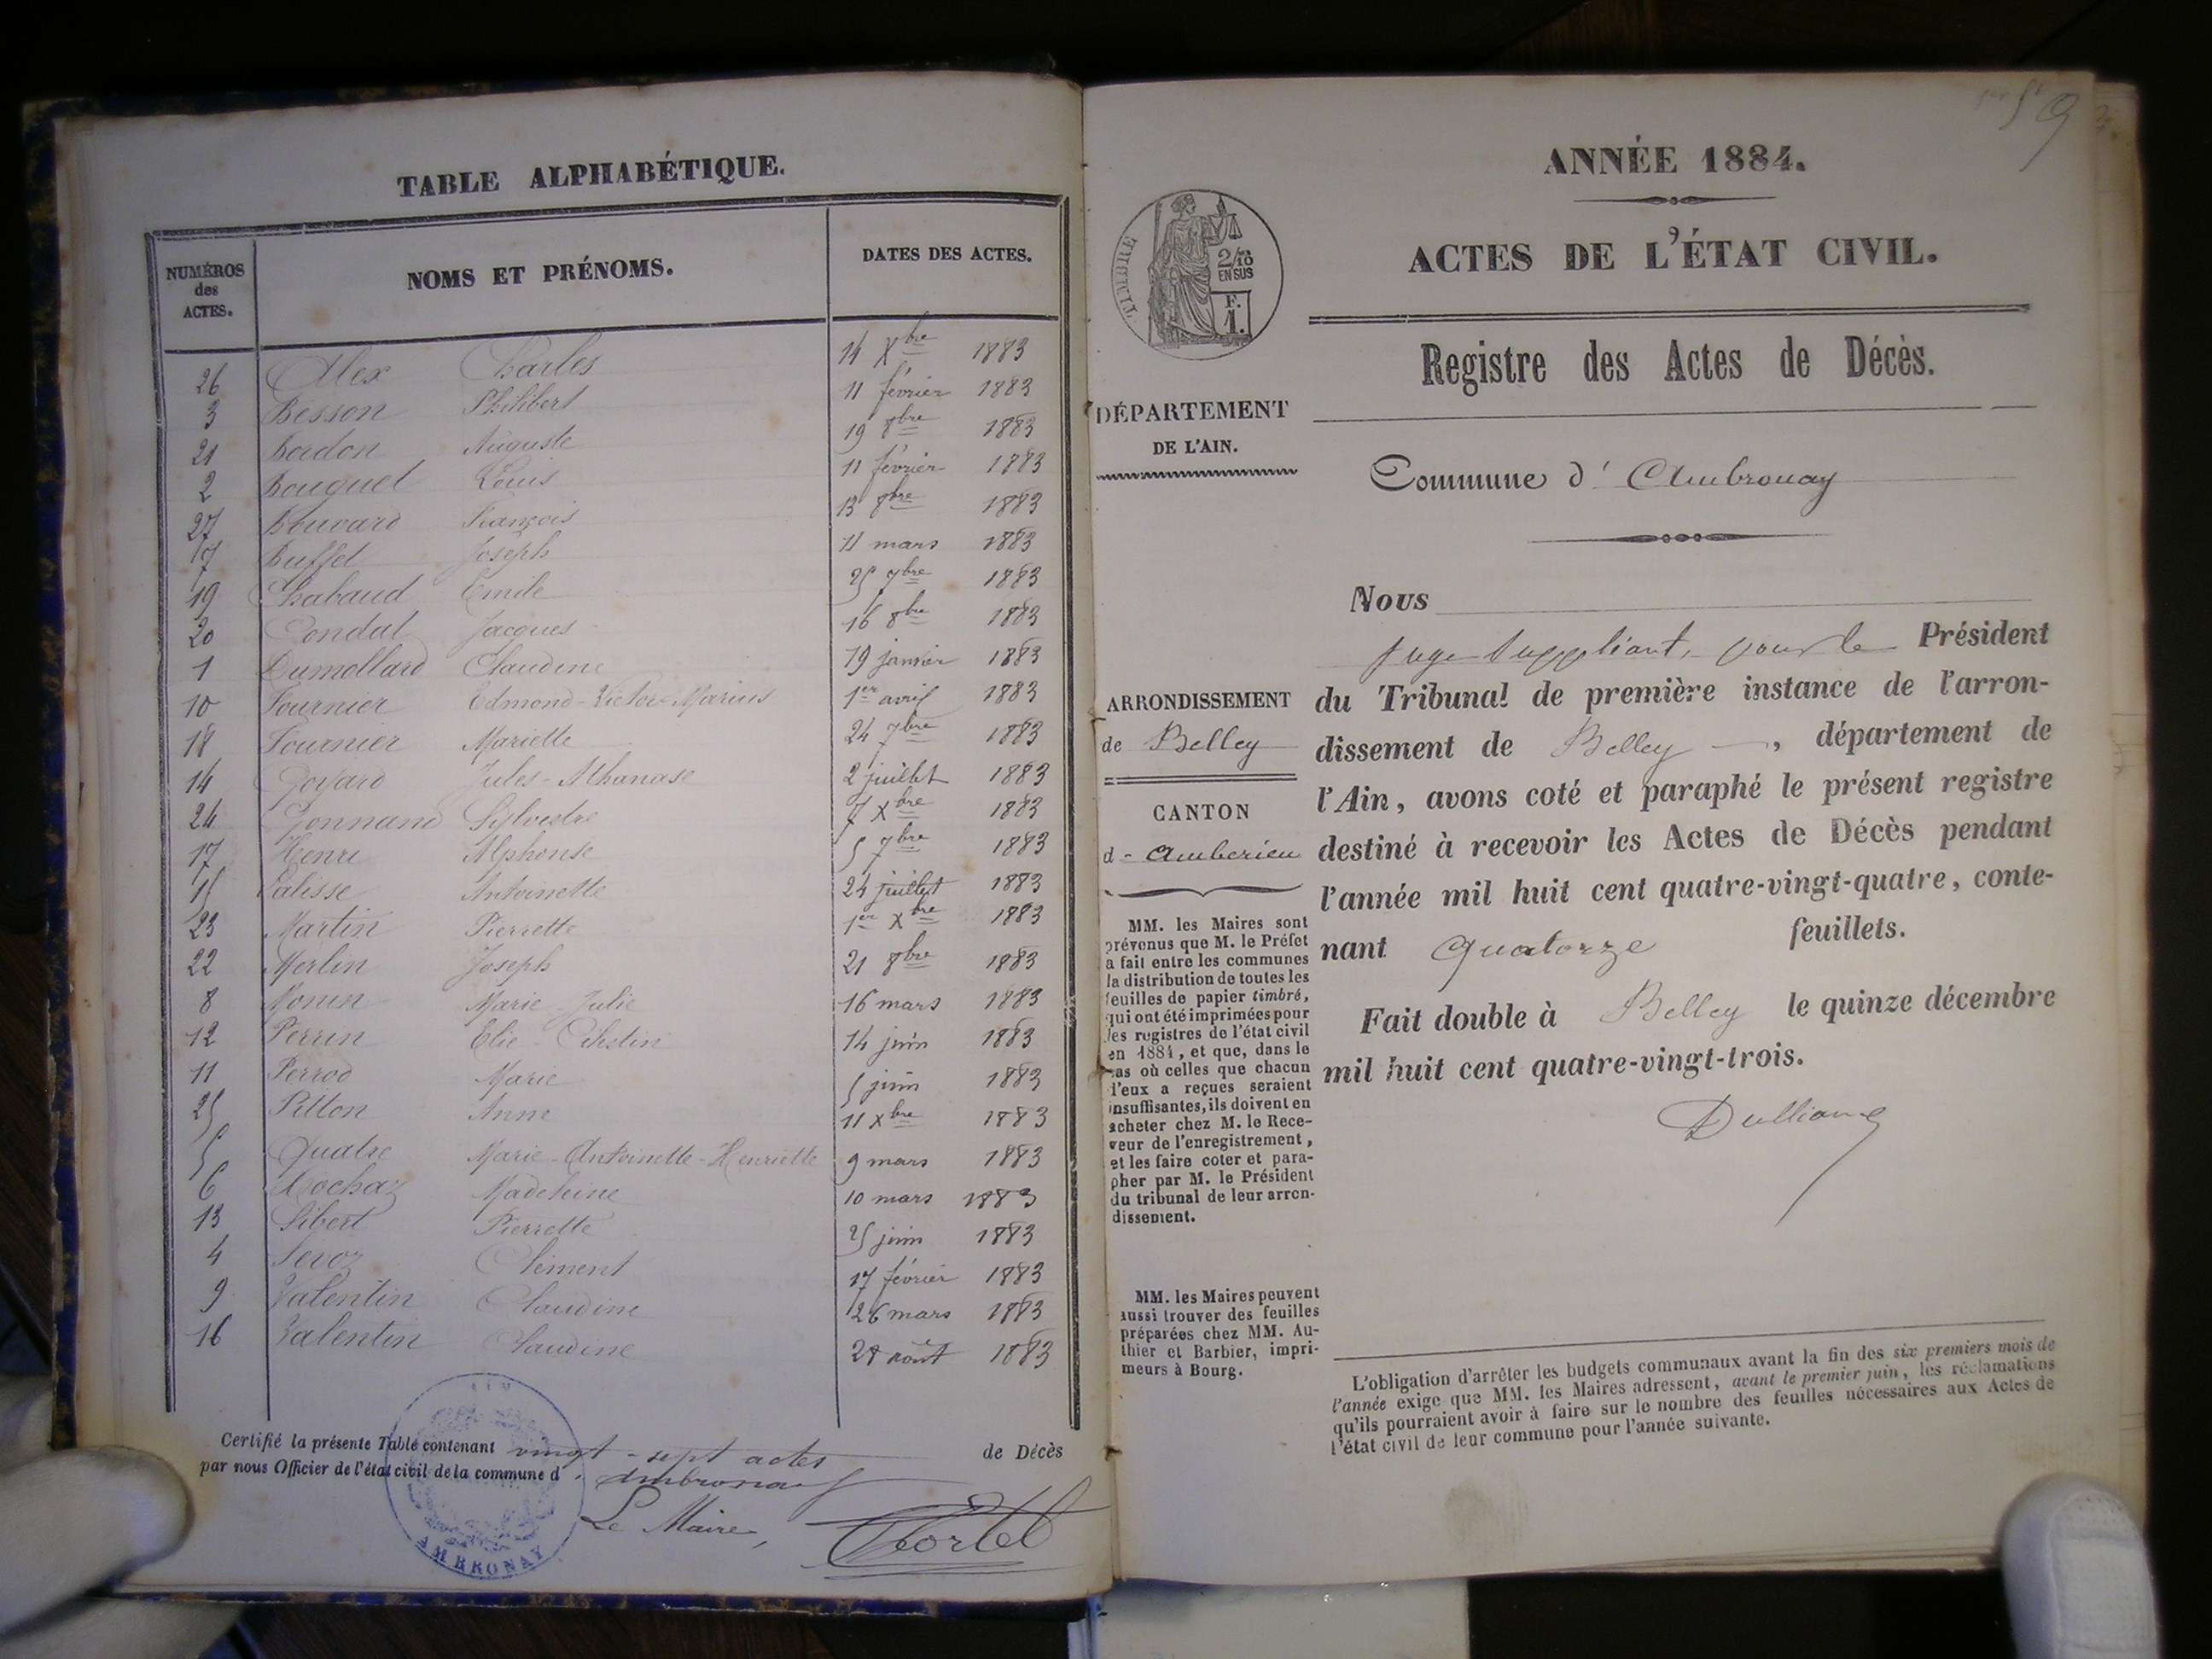 TABLE ALPHABÉTIQUE.
NUMÉROS des ACTES. NOMS ET PRÉNOMS. DATES DES ACTES.
26 Alex Charles 14 Xbre 1883
3 Besson Philibert 11 février 1883
21 Bordon Auguste 19 8bre 1883
2 Bouquet Louis 11 février 1883
27 Bouvard François 13 8bre 1883
7 Buffet Joseph 11 mars 1883
19 Chabaud Emile 25 7bre 1883
20 Condat Jacques 16 8bre 1883
1 Dumollard Claudine 19 janvier 1883
10 Fournier Edmond-Victor-Marius 1er avril 1883
18 Fournier Mariette 24 7bre 1883
14 Goyard Jules-Athanase 2 juillet 1883
24 Jonnand Sylvestre 7 Xbre 1883
17 Henri Alphonse 5 7bre 1883
15 Lalisse Antoinette 24 juillet 1883
23 Martin Pierrette 1er Xbre 1883
22 Merlin Joseph 21 8bre 1883
8 Monin Marie Julie 16 mars 1883
12 Perrin Elie-Célestin 14 juin 1883
11 Perrod Marie 5 juin 1883
25 Pitton Anne 11 Xbre 1883
5 Quatre Marie-Antoinette-Henriette 9 mars 1883
6 Rochaz Madeleine 10 mars 1883
13 Sibert Pierrette 25 juin 1883
4 Sevoz Clément 17 février 1883
9 Valentin Claudine 26 mars 1883
16 Valentin Claudine 28 août 1883
Certifié la présente Table contenant vingt-sept actes de Décès
par nous Officier de l'état civil de la commune d'Ambronay
Le Maire,
AIN
AMBRONAY
59
ANNÉE 1884.
ACTES DE L'ÉTAT CIVIL.
Registre des Actes de Décès.
TIMBRE
2/10
EN SUS
F.
1.
DÉPARTEMENT
DE L'AIN.
Commune d'Ambronay
ARRONDISSEMENT
de Belley
CANTON
d'Amberieu
MM. les Maires sont
prévenus que M. le Préfet
a fait entre les communes
la distribution de toutes les
feuilles de papier timbré,
qui ont été imprimées pour
les registres de l'état civil
en 1884, et que, dans le
cas où celles que chacun
d'eux a reçues seraient
insuffisantes, ils doivent en
acheter chez M. le Rece-
veur de l'enregistrement,
et les faire coter et para-
pher par M. le Président
du tribunal de leur arron-
dissement.
MM. les Maires peuvent
aussi trouver des feuilles
préparées chez MM. Au-
thier et Barbier, impri-
meurs à Bourg.
Nous
juge suppléant, pour le Président
du Tribunal de première instance de l'arron-
dissement de Belley, département de
l'Ain, avons coté et paraphé le présent registre
destiné à recevoir les Actes de Décès pendant
l'année mil huit cent quatre-vingt-quatre, conte-
nant quatorze feuillets.
Fait double à Belley le quinze décembre
mil huit cent quatre-vingt-trois.
L'obligation d'arrêter les budgets communaux avant la fin des six premiers mois de
l'année exige que MM. les Maires adressent, avant le premier juin, les réclamations
qu'ils pourraient avoir à faire sur le nombre des feuilles nécessaires aux Actes de
l'état civil de leur commune pour l'année suivante.